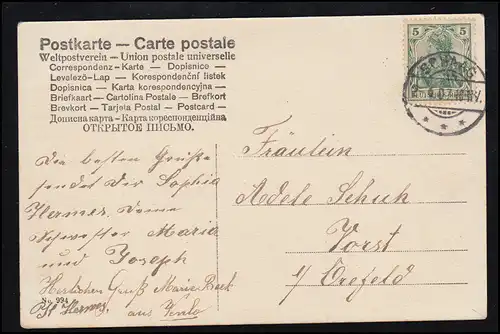 Postkarte — Carte postale
Weltpostverein — Union postale universelle
Correspondenz-Karte — Dopisnice —
Levelező-Lap — Korespondenční lístek
Dopisnica — Karta korespondencyjna —
Briefkaart — Cartolina Postale — Brefkort
Brevkort — Tarjeta Postal — Postcard —
Дописна карта — Карта кореспонденційна
ОТКРЫТОЕ ПИСЬМО.
5 5
Die besten Grüße
sendet dir Sophia
Hermes. Deine
Schwester Maria
und Joseph
Herzlichen Gruß Marie Beck
No. 994
Hermes. aus Venlo
Fräulein
Adele Schuh
Vorst
b/ Crefeld